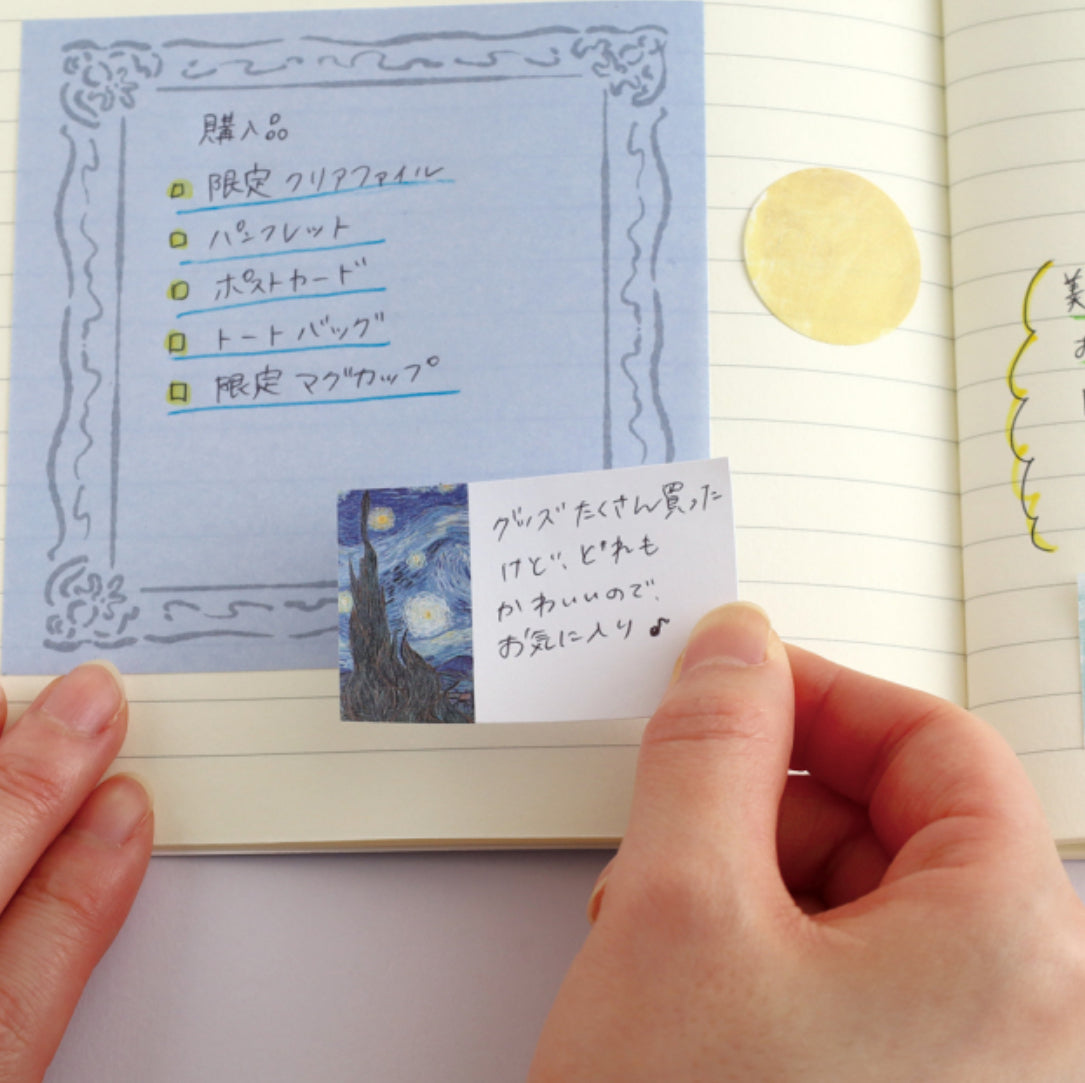 購入品
限定 クリアファイル
パンフレット
ポストカード
トートバッグ
限定 マグカップ
グッズたくさん買った
けど、どれも
かわいいので、
お気に入り♪
美
お